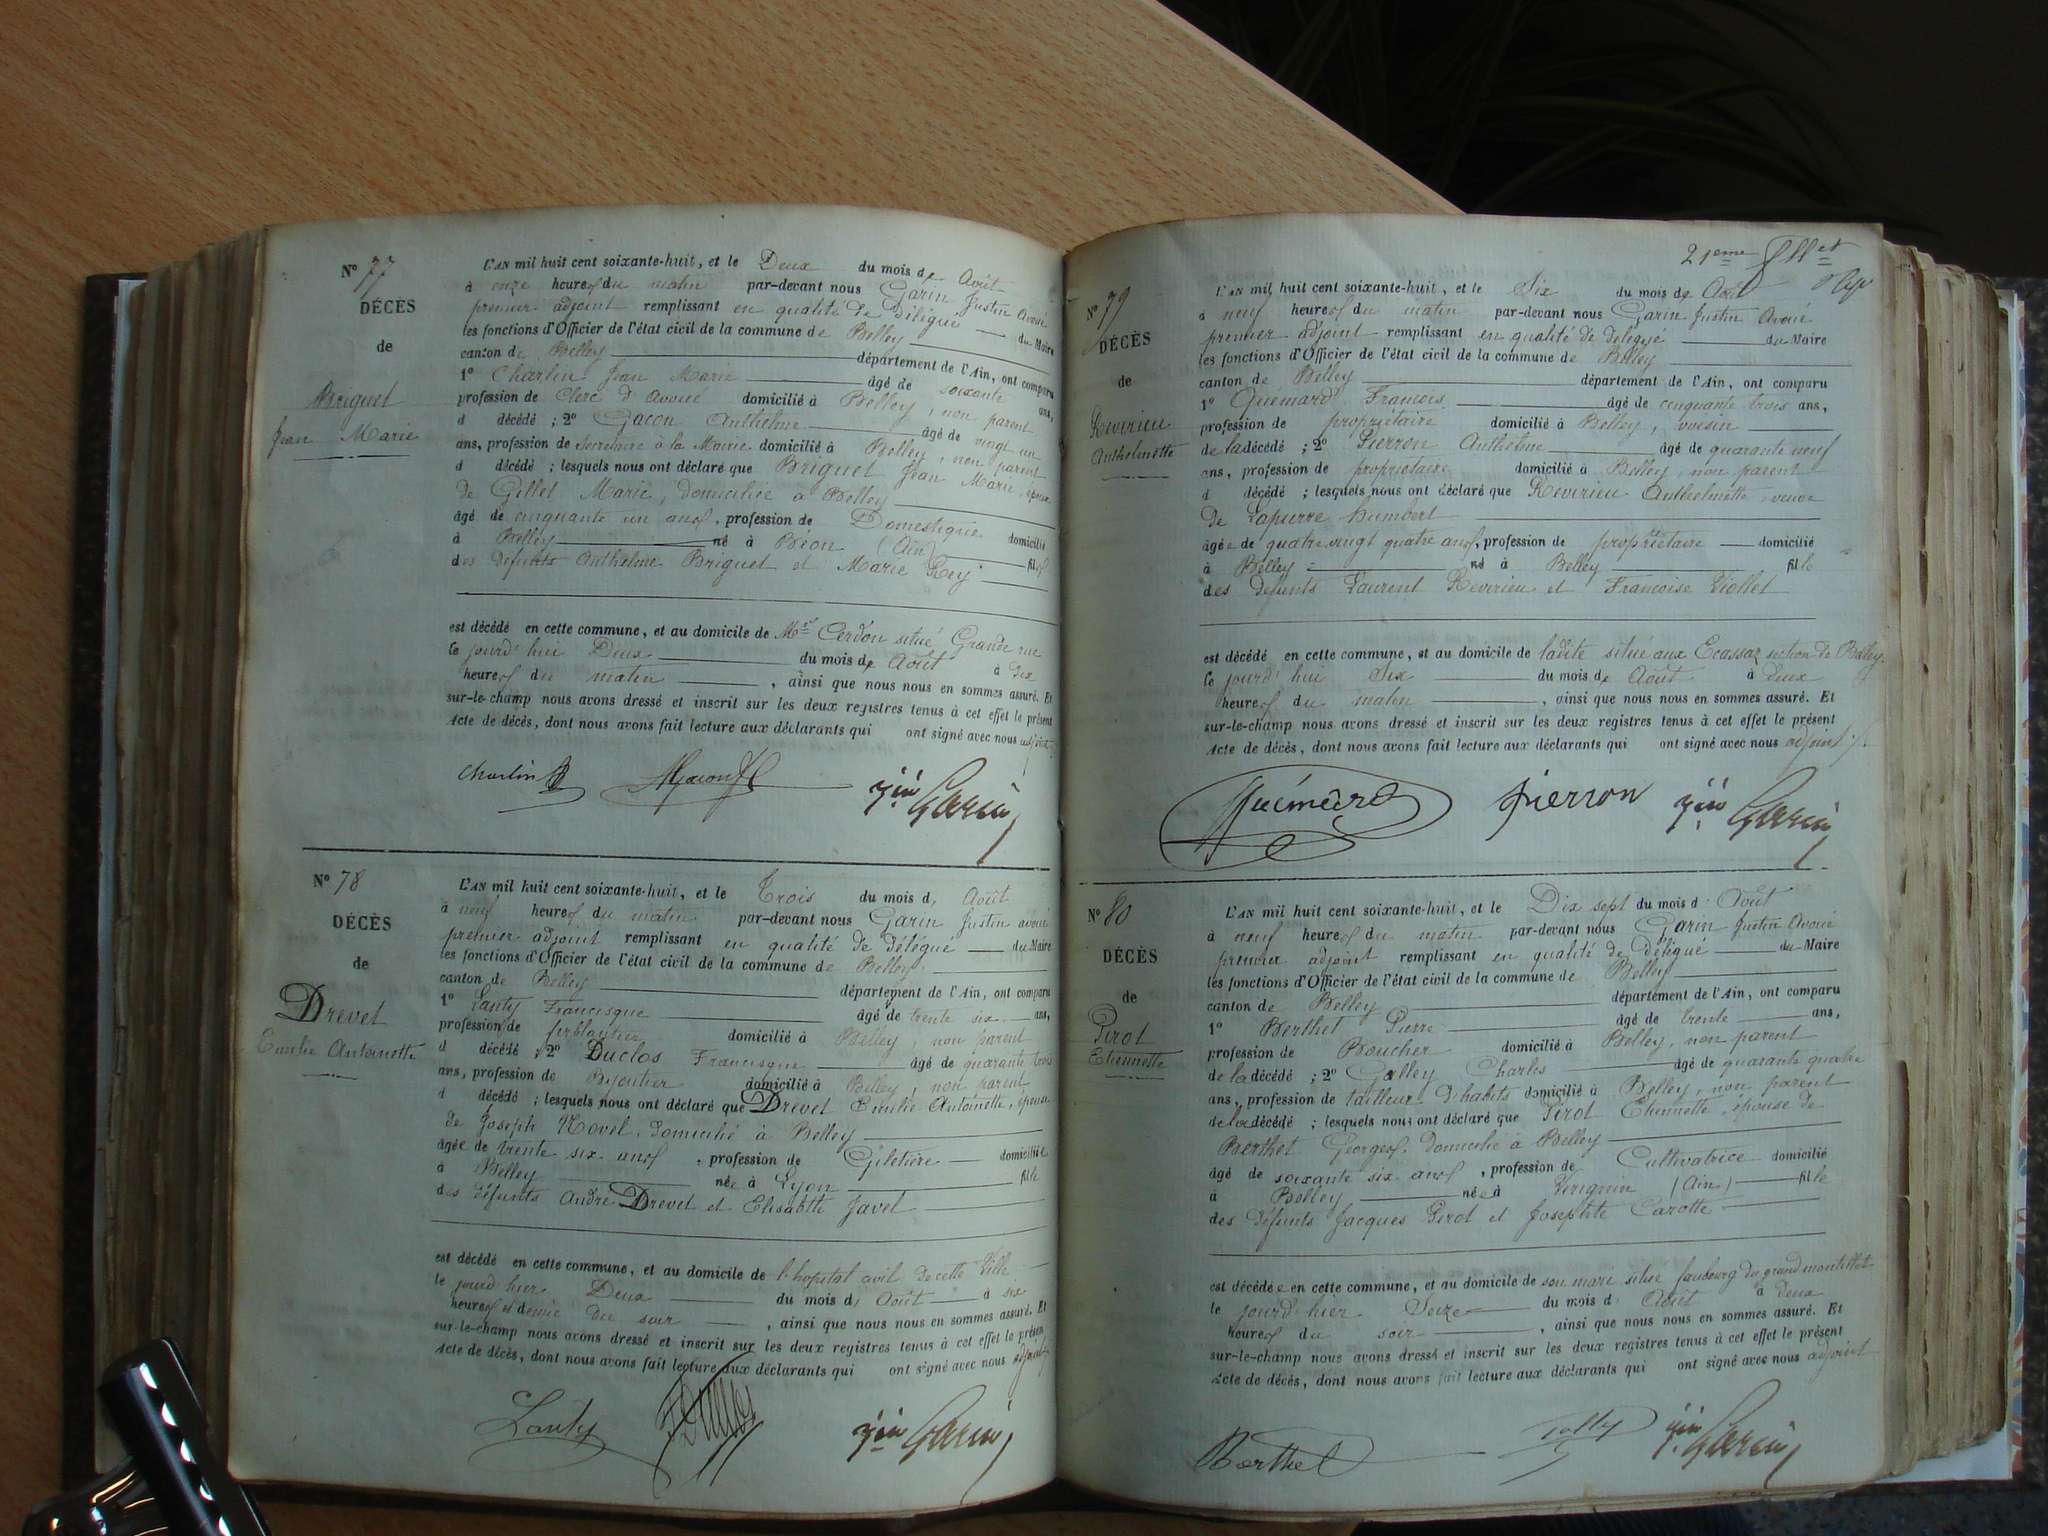 N° 77
DÉCÈS
de
Briguet
Jean Marie
L'AN mil huit cent soixante-huit, et le Deux du mois de Août
à onze heures du matin par-devant nous Garin Justin Avoué
premier adjoint remplissant en qualité de Délégué du Maire
les fonctions d'Officier de l'état civil de la commune de Belley
canton de Belley département de l'Ain, ont comparu
1° Charlin Jean Marie âgé de soixante ans,
profession de Clerc d'Avoué domicilié à Belley, non parent
d décédé ; 2° Gacon Anthelme âgé de vingt un
ans, profession de Secrétaire à la Mairie domicilié à Belley, non parent
d décédé ; lesquels nous ont déclaré que Briguet Jean Marie, époux
de Gillet Marie, domiciliée à Belley
âgé de cinquante un ans, profession de Domestique domicilié
à Belley né à Béon (Ain) fils
des défunts Anthelme Briguet et Marie Rey
est décédé en cette commune, et au domicile de Mr Cerdon situé Grande rue
le jourd'hui Deux du mois de Août à dix
heures du matin , ainsi que nous nous en sommes assuré. Et
sur-le-champ nous avons dressé et inscrit sur les deux registres tenus à cet effet le présent
Acte de décès, dont nous avons fait lecture aux déclarants qui ont signé avec nous adjoint
Charlin Gacon Jin Garin
N° 78
DÉCÈS
de
Drevet
Emilie Antoinette
L'AN mil huit cent soixante-huit, et le Trois du mois d Août
à neuf heures du matin par-devant nous Garin Justin avoué
premier adjoint remplissant en qualité de Délégué du Maire
les fonctions d'Officier de l'état civil de la commune de Belley
canton de Belley département de l'Ain, ont comparu
1° Lanty Francisque âgé de trente six ans,
profession de ferblantier domicilié à Belley, non parent
d décédé ; 2° Duclos Francisque âgé de quarante trois
ans, profession de Bijoutier domicilié à Belley, non parent
d décédé ; lesquels nous ont déclaré que Drevet Emilie Antoinette, épouse
de Joseph Novel, domicilié à Belley
âgée de trente six ans , profession de Giletière domiciliée
à Belley née à Lyon fille
des défunts André Drevet et Elisabeth Javet
est décédé en cette commune, et au domicile de l'hopital civil de cette Ville
le jourd'hier Deux du mois d Août à six
heures et demie du soir , ainsi que nous nous en sommes assuré. Et
sur-le-champ nous avons dressé et inscrit sur les deux registres tenus à cet effet le présent
Acte de décès, dont nous avons fait lecture aux déclarants qui ont signé avec nous adjoint
Lanty F Duclos Jin Garin
21eme fllet
N° 79
DÉCÈS
de
Revirieu
Anthelmette
L'AN mil huit cent soixante-huit, et le Six du mois de Août
à neuf heures du matin par-devant nous Garin Justin Avoué
premier adjoint remplissant en qualité de délégué du Maire
les fonctions d'Officier de l'état civil de la commune de Belley
canton de Belley département de l'Ain, ont comparu
1° Guémard François âgé de cinquante trois ans,
profession de propriétaire domicilié à Belley, voisin
de la décédé ; 2° Pierron Anthelme âgé de quarante neuf
ans, profession de propriétaire domicilié à Belley, non parent
d décédé ; lesquels nous ont déclaré que Revirieu Anthelmette, veuve
de Lapierre Humbert
âgée de quatre vingt quatre ans, profession de propriétaire domicilié
à Belley né à Belley fille
des défunts Laurent Revirieu et Françoise Viollet
est décédé en cette commune, et au domicile de ladite situé aux Ecassaz section de Belley
le jourd'hui Six du mois de Août à Deux
heures du matin , ainsi que nous nous en sommes assuré. Et
sur-le-champ nous avons dressé et inscrit sur les deux registres tenus à cet effet le présent
Acte de décès, dont nous avons fait lecture aux déclarants qui ont signé avec nous adjoint
Guémard Pierron Jin Garin
N° 80
DÉCÈS
de
Pirot
Etiennette
L'AN mil huit cent soixante-huit, et le Dix sept du mois d Août
à neuf heures du matin par-devant nous Garin Justin Avoué
premier adjoint remplissant en qualité de Délégué du Maire
les fonctions d'Officier de l'état civil de la commune de Belley
canton de Belley département de l'Ain, ont comparu
1° Berthet Pierre âgé de trente ans,
profession de Boucher domicilié à Belley, non parent
de la décédé ; 2° Golley Charles âgé de quarante quatre
ans, profession de tailleur d'habits domicilié à Belley, non parent
de la décédé ; lesquels nous ont déclaré que Pirot Etiennette, épouse de
Berthet Georges, domicilié à Belley
âgé de soixante six ans , profession de Cultivatrice domicilié
à Belley née à Virignin (Ain) fille
des défunts Jacques Pirot et Josephte Carotte
est décédée en cette commune, et au domicile de son mari situé faubourg du grand montillet
le jourd'hier Seize du mois d Août à deux
heures du soir , ainsi que nous nous en sommes assuré. Et
sur-le-champ nous avons dressé et inscrit sur les deux registres tenus à cet effet le présent
Acte de décès, dont nous avons fait lecture aux déclarants qui ont signé avec nous adjoint
Berthet Golley Jin Garin